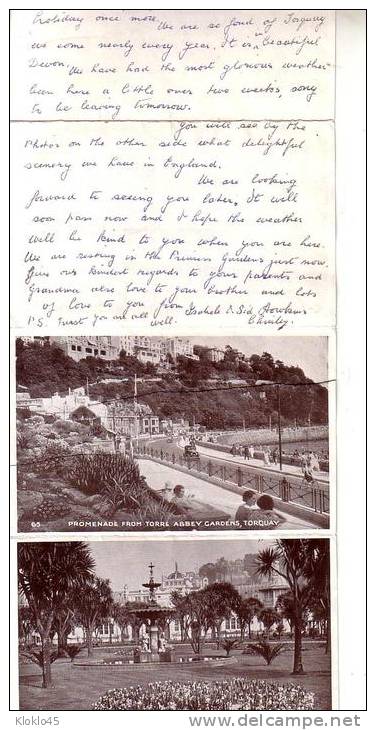 holiday once more. We are so fond of Torquay
we come nearly every year. It is in beautiful
Devon. We have had the most glorious weather
been here a little over two weeks, sorry
to be leaving tomorrow.
You will see by the
Photos on the other side what delightful
scenery we have in England.
We are looking
forward to seeing you later, It will
soon pass now and I hope the weather
will be kind to you when you are here.
We are resting in the Princess Gardens just now.
Give our kindest regards to your parents and
Grandma also love to your brother and lots
of love to you from Isabele & Sid Hawkins
P.S. Trust you are all well.
65 PROMENADE FROM TORRE ABBEY GARDENS, TORQUAY
Kloklo45